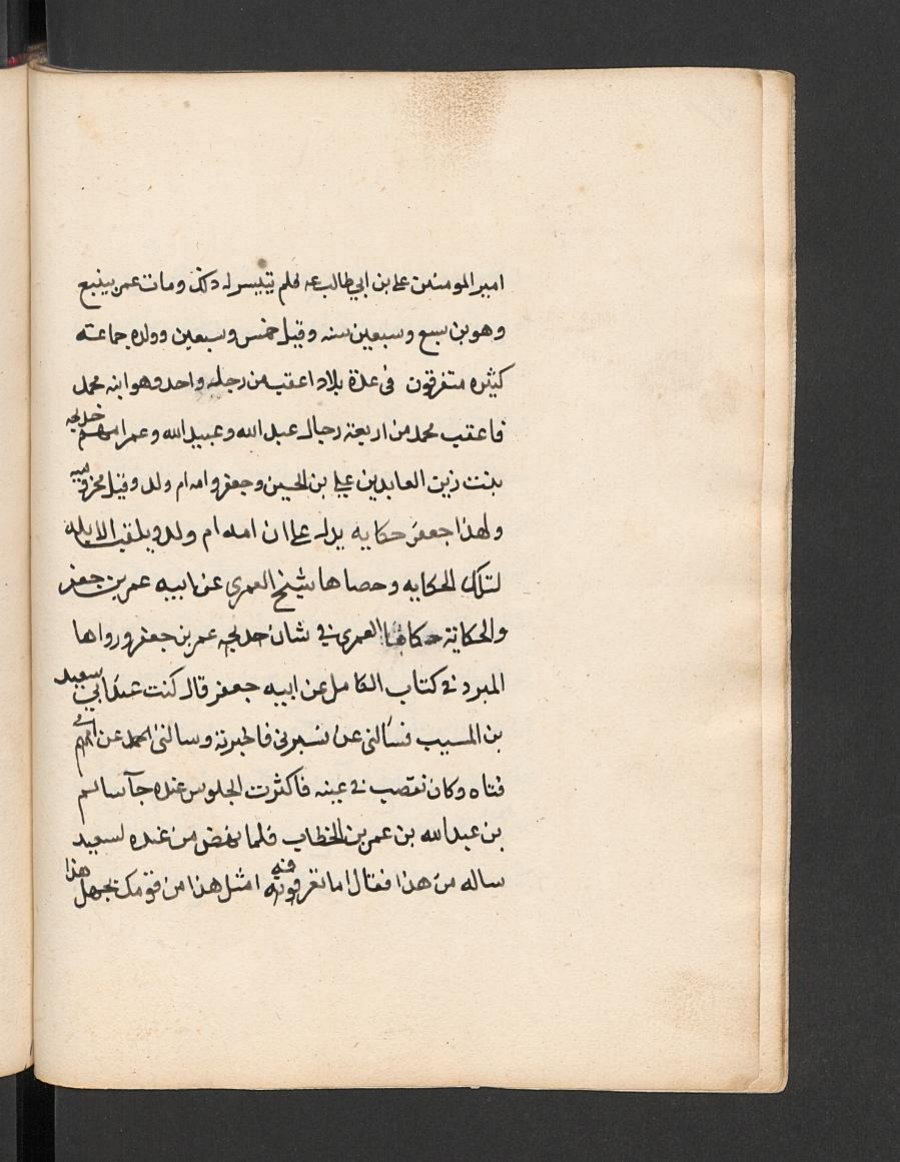 امير المومنين علي بن ابي طالب عه فلم يتيسر له ذلك ومات عمر بينبع
وهو بن سبع وسبعين سنه وقيل خمس وسبعين وولده جماعته
كثيره متفرقون في عدة بلاد اعقب من رجله واحد وهو ابنه محمد
فاعقب محمد من اربعة رجال عبد الله وعبيد الله وعمر امهم خديجه
بنت زين العابدين علي بن الحسين وجعفر وامه ام ولد وقيل مخزوميه
ولهذا جعفر حكايه يدل على ان امه ام ولد ويلقب الابله
لتلك الحكايه وحصاها شيخ العمري عن ابيه عمر بن جعفر
والحكاية حكاها العمري في شان خديجه عمر بن جعفر ورواها
المبرد في كتاب الكامل عن ابيه جعفر قال كنت عند ابي سعيد
بن المسيب فسألني عن نسبي فاخبرته وسالني عن امي
فتاه وكان نقصت في عينه فاكثرت الجلوس عنده جآ سالم
بن عبد الله بن عمر بن الخطاب فلما نهض من عنده لسعيد
ساله من هذا فقال اما تعرفونه امثل هذا من قومك تجهل هذا